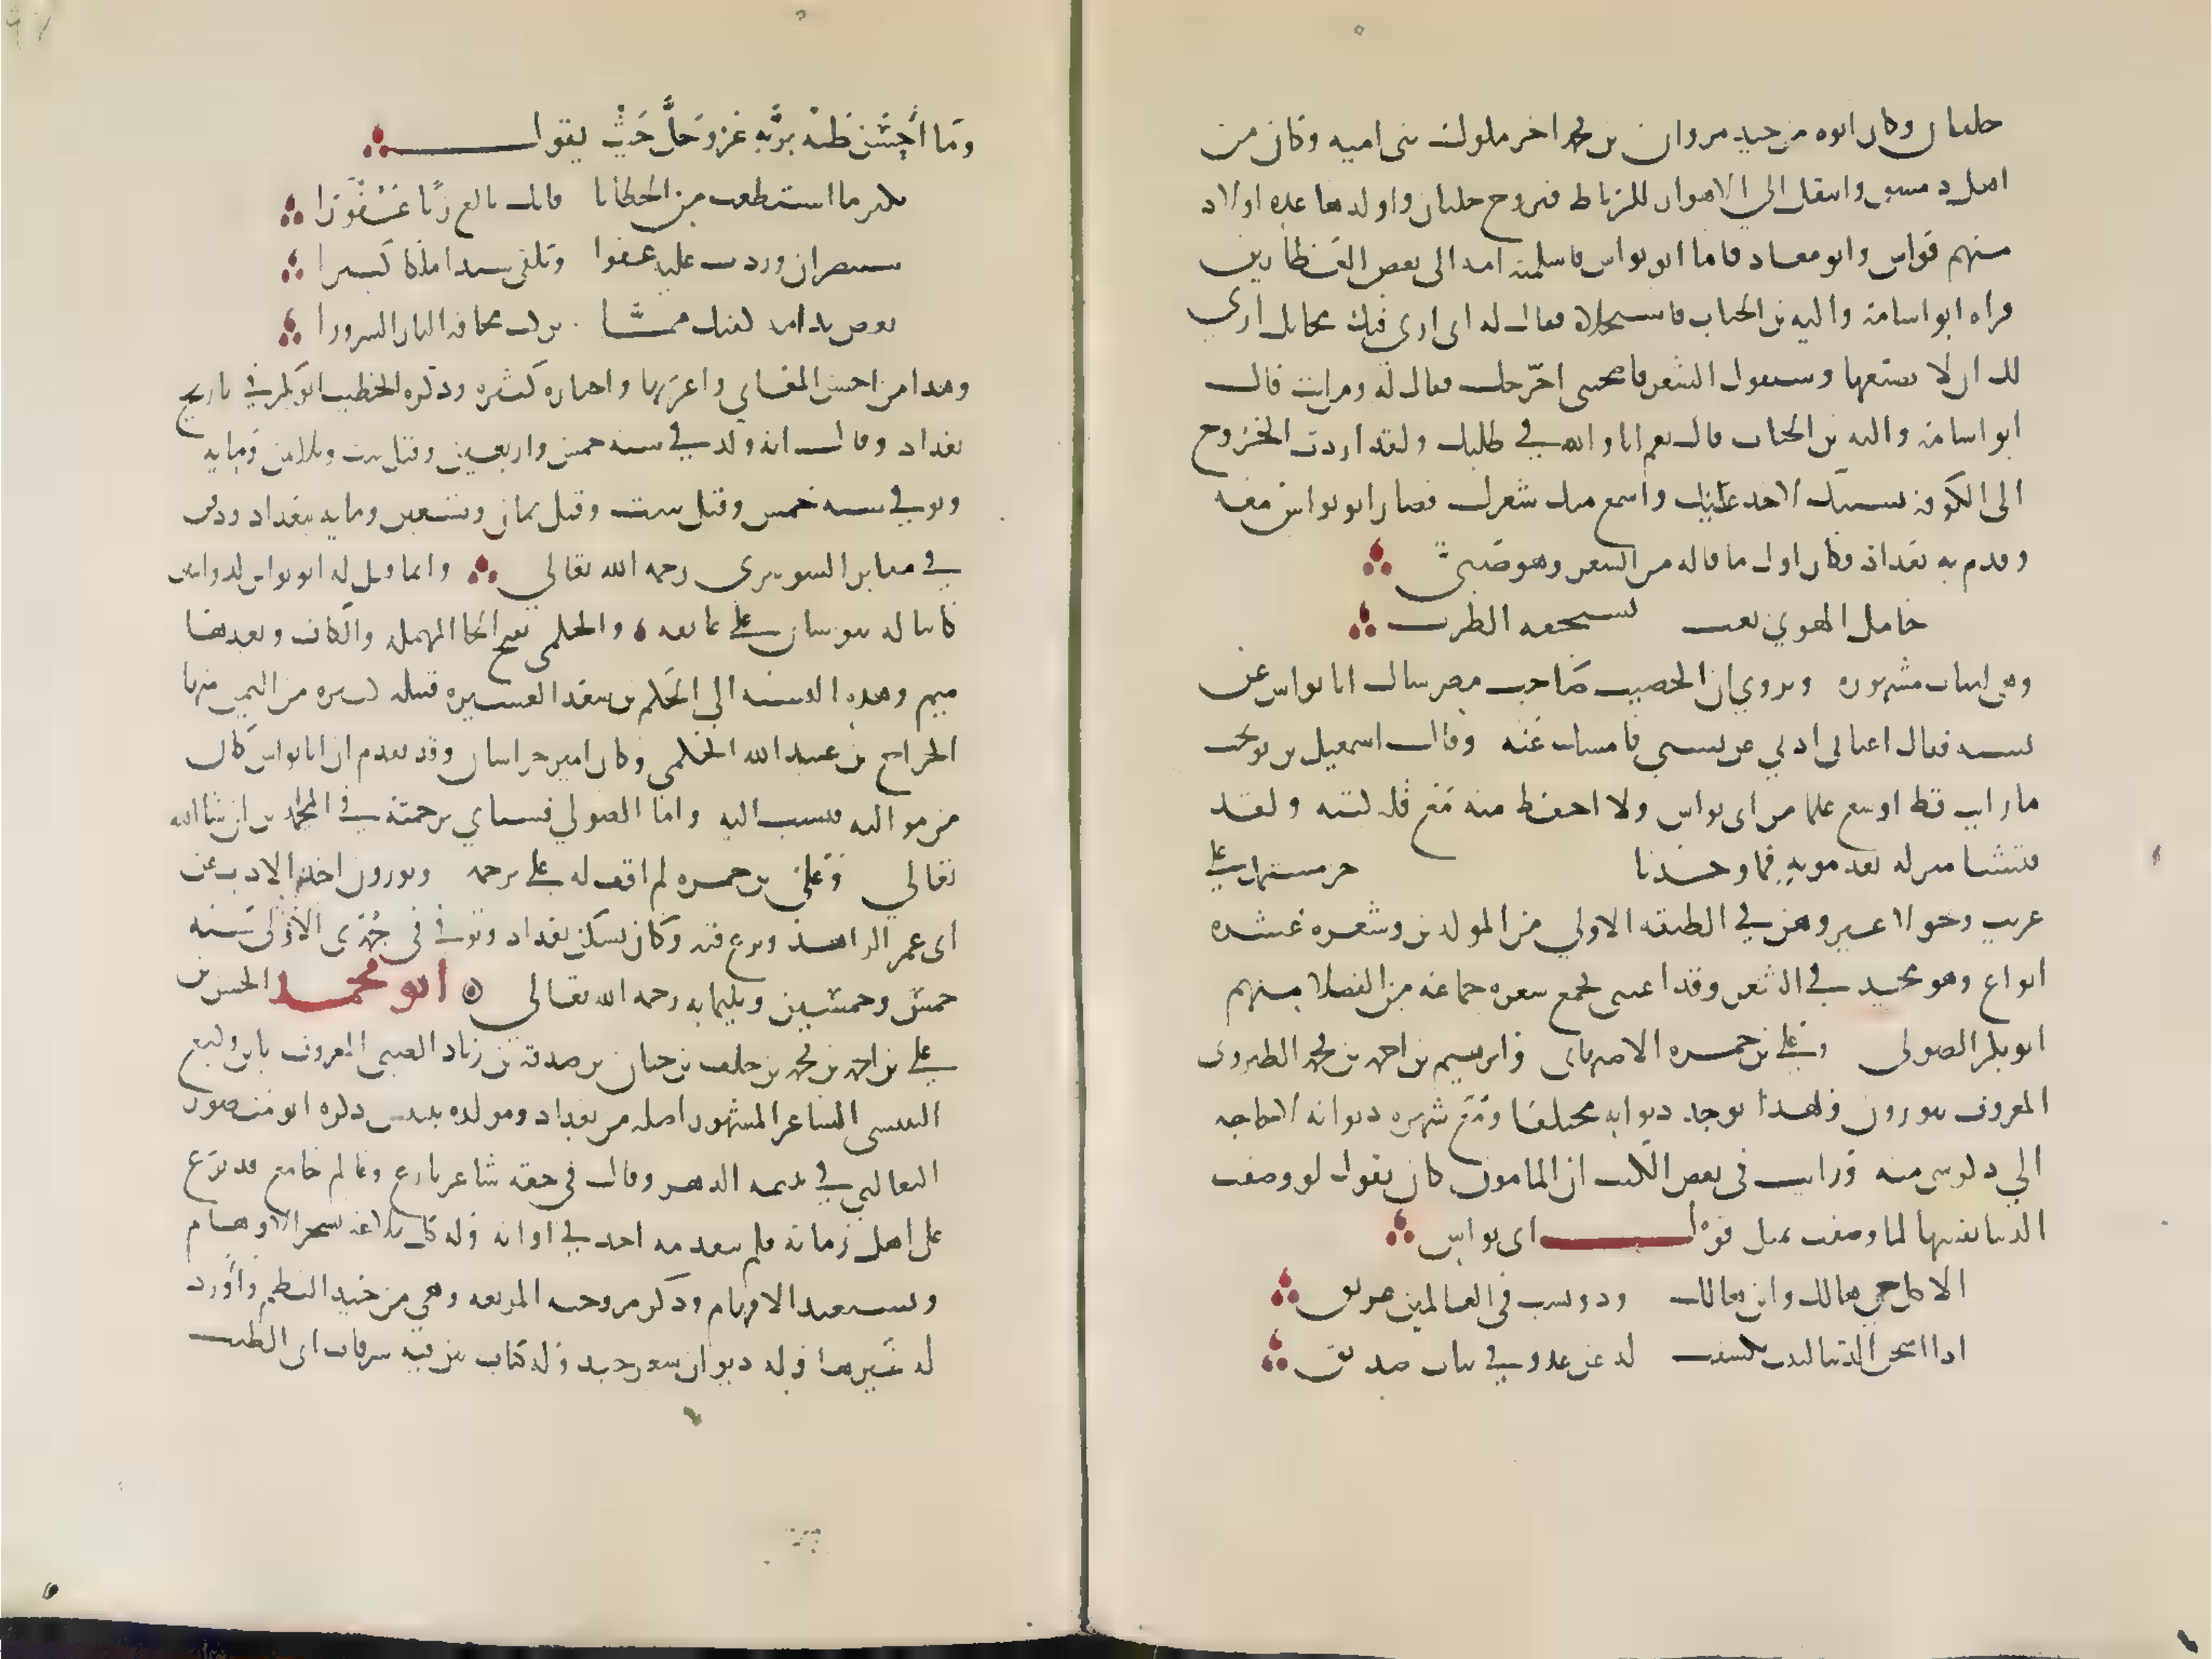 جلبان وكان ابوه من جند مروان بن محمد اخر ملوك بني اميه وكان من
اهل دمشق وانتقل الي الاهواز للرباط فتزوج جلبان واولدها عده اولاد
منهم ابو نواس وابو معاد فاما ابو نواس فاسلمته امه الى بعض العطارين
فراه ابو اسامة والبه بن الحباب فاستحلاه فقال له اني اري فيك مخايل اري
لك ان لا تضيعها وستقول الشعر فاصحبني اخرجك فقال له ومن انت قال
ابو اسامة والبه بن الحباب قال نعم انا والله في طلبك ولقد اردت الخروج
الى الكوفه بسببك لاخد عنك واسمع منك شعرك فصار ابو نواس معه
وقدم به بغداد فكان اول ما قاله من الشعر وهو صبي
حامل الهوي تعب يستخفه الطرب
وهي ابيات مشهوره ويروي ان الخصيب صاحب مصر سال ابا نواس عن
نسبه فقال اغناني ادبي عن نسبي فامسك عنه وقال اسمعيل بن نوبخت
ما رايت قط اوسع علما من ابي نواس ولا احفظ منه مع قلة كتبه ولقد
فتشنا منزله بعد موته فما وجدنا جزء مشتمل علي
غريب ونحو لا غير وهو في الطبقه الاولي من المولدين وشعره عشره
انواع وهو مجيد في الشعر وقد اعتنى بجمع شعره جماعه من الفضلا منهم
ابو بكر الصولي وعلي بن حمزه الاصبهاني وابرهيم بن احمد بن محمد الطبري
المعروف بتوزون فلهذا يوجد ديوانه مختلفا ومع شهره ديوانه لا حاجه
الي ذكر شي منه ورايت في بعض الكتب ان المامون كان يقول لو وصفت
الدنيا نفسها لما وصفت بمثل قول ابي نواس
الا كل حي هالك وابن هالك ودو نسب في العالمين عريق
ادا امتحن الدنيا لبيب تكشفت له عن عدو في ثياب صديق
وما احسن ظنه بربه عز وجل حيث يقول
تكثر ما استطعت من الخطايا فانك بالغ ربا غفورا
ستبصر ان وردت عليه عفوا وتلقى سيدا ملكا كبيرا
تعض ندامه كفيك مما تركت مخافه النار السرورا
وهدا من احسن المعاني واغربها واخباره كثيره ودكره الخطيب ابو بكر في تاريخ
بغداد وقال انه ولد في سنه خمس واربعين وقيل ست وثلاثين ومايه
وتوفي سنه خمس وقيل ست وقيل ثمان وتسعين ومايه ببغداد ودفن
في مقابر الشونيزي رحمه الله تعالي وانما قيل له ابو نواس لدوابتين
كانتا له تنوسان علي عاتقه والحكمي بفتح الحا المهمله والكاف وبعدها
ميم وهده النسبه الي الحكم بن سعد العشيره قبيله كبيره من اليمن منها
الجراح بن عبد الله الحكمي وكان امير خراسان وقد تقدم ان ابا نواس كان
من مواليه فنسب اليه واما الصولي فسياتي ترجمته في المحمدين ان شا الله
تعالي وعلي بن حمزه لم اقف له علي ترجمه وتوزون اخذ الادب عن
ابي عمر الزاهد وبرع فيه وكان يسكن بغداد وتوفي في جمدى الاولى سنه
خمس وخمسين وثلثمايه رحمه الله تعالي ابو محمد الحسن بن
علي بن احمد بن محمد بن خلف بن حيان بن صدقه بن زياد الضبي المعروف بابن وكيع
التنيسي الشاعر المشهور اصله من بغداد ومولده بتنيس دكره ابو منصور
الثعالبي في يتيمه الدهر وقال في حقه شاعر بارع وعالم جامع قد برع
على اهل زمانه فلم يتقدمه احد في اوانه وله كل بلاغه تسحر الاوهام
وتستعبد الافهام ودكر مزدوجته المربعه وهي من جيد النظم واورد
له غيرها وله ديوان شعر جيد وله كتاب بين فيه سرقات ابي الطيب